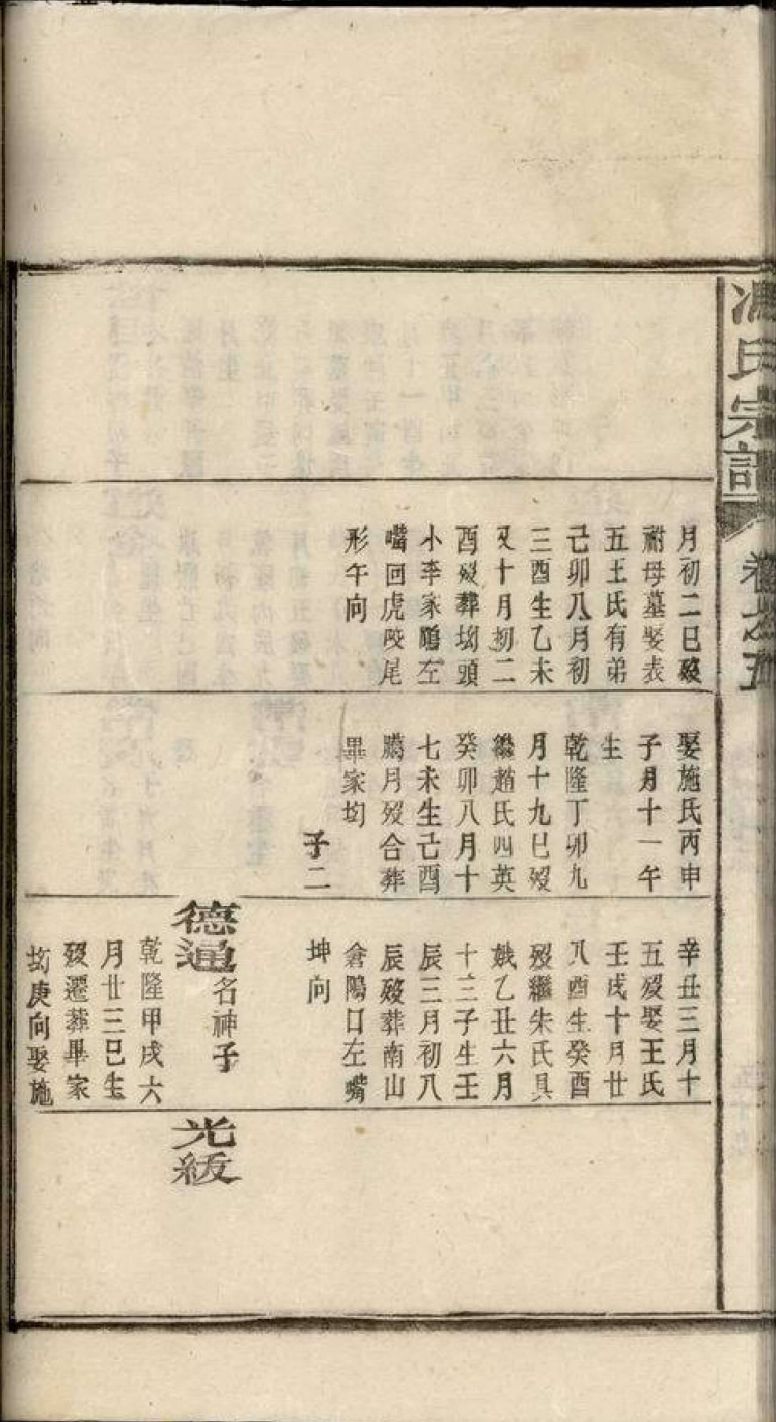 馮氏宗譜
卷之五
月初二巳殁
祔母墓娶表
五王氏有弟
己卯八月初
三酉生乙未
又十月初二
酉殁葬坳頭
小李家鵰左
嘴回虎咬尾
形午向
娶施氏丙申
子月十一午
生
乾隆丁卯九
月十九巳殁
繼趙氏四英
癸卯八月十
七未生己酉
臈月殁合葬
畢家坳
子二
辛丑三月十
五殁娶王氏
壬戌十月廿
八酉生癸酉
殁繼朱氏具
娥乙丑六月
十三子生壬
辰三月初八
辰殁葬南山
倉陽口左嘴
坤向
德通名神子
乾隆甲戌六
月廿三巳生
殁遷葬畢家
坳庚向娶施
光紱